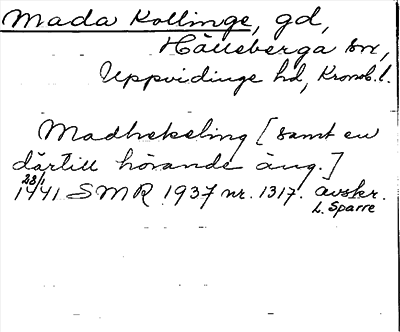 Mada Kollinge, gd,
Hälleberga sn,
Uppvidinge hd, Kronob. l.
Madhekeling [samt en
därtill hörande äng.]
23/1
1441 SMR 1937 nr. 1317. avskr.
L. Sparre